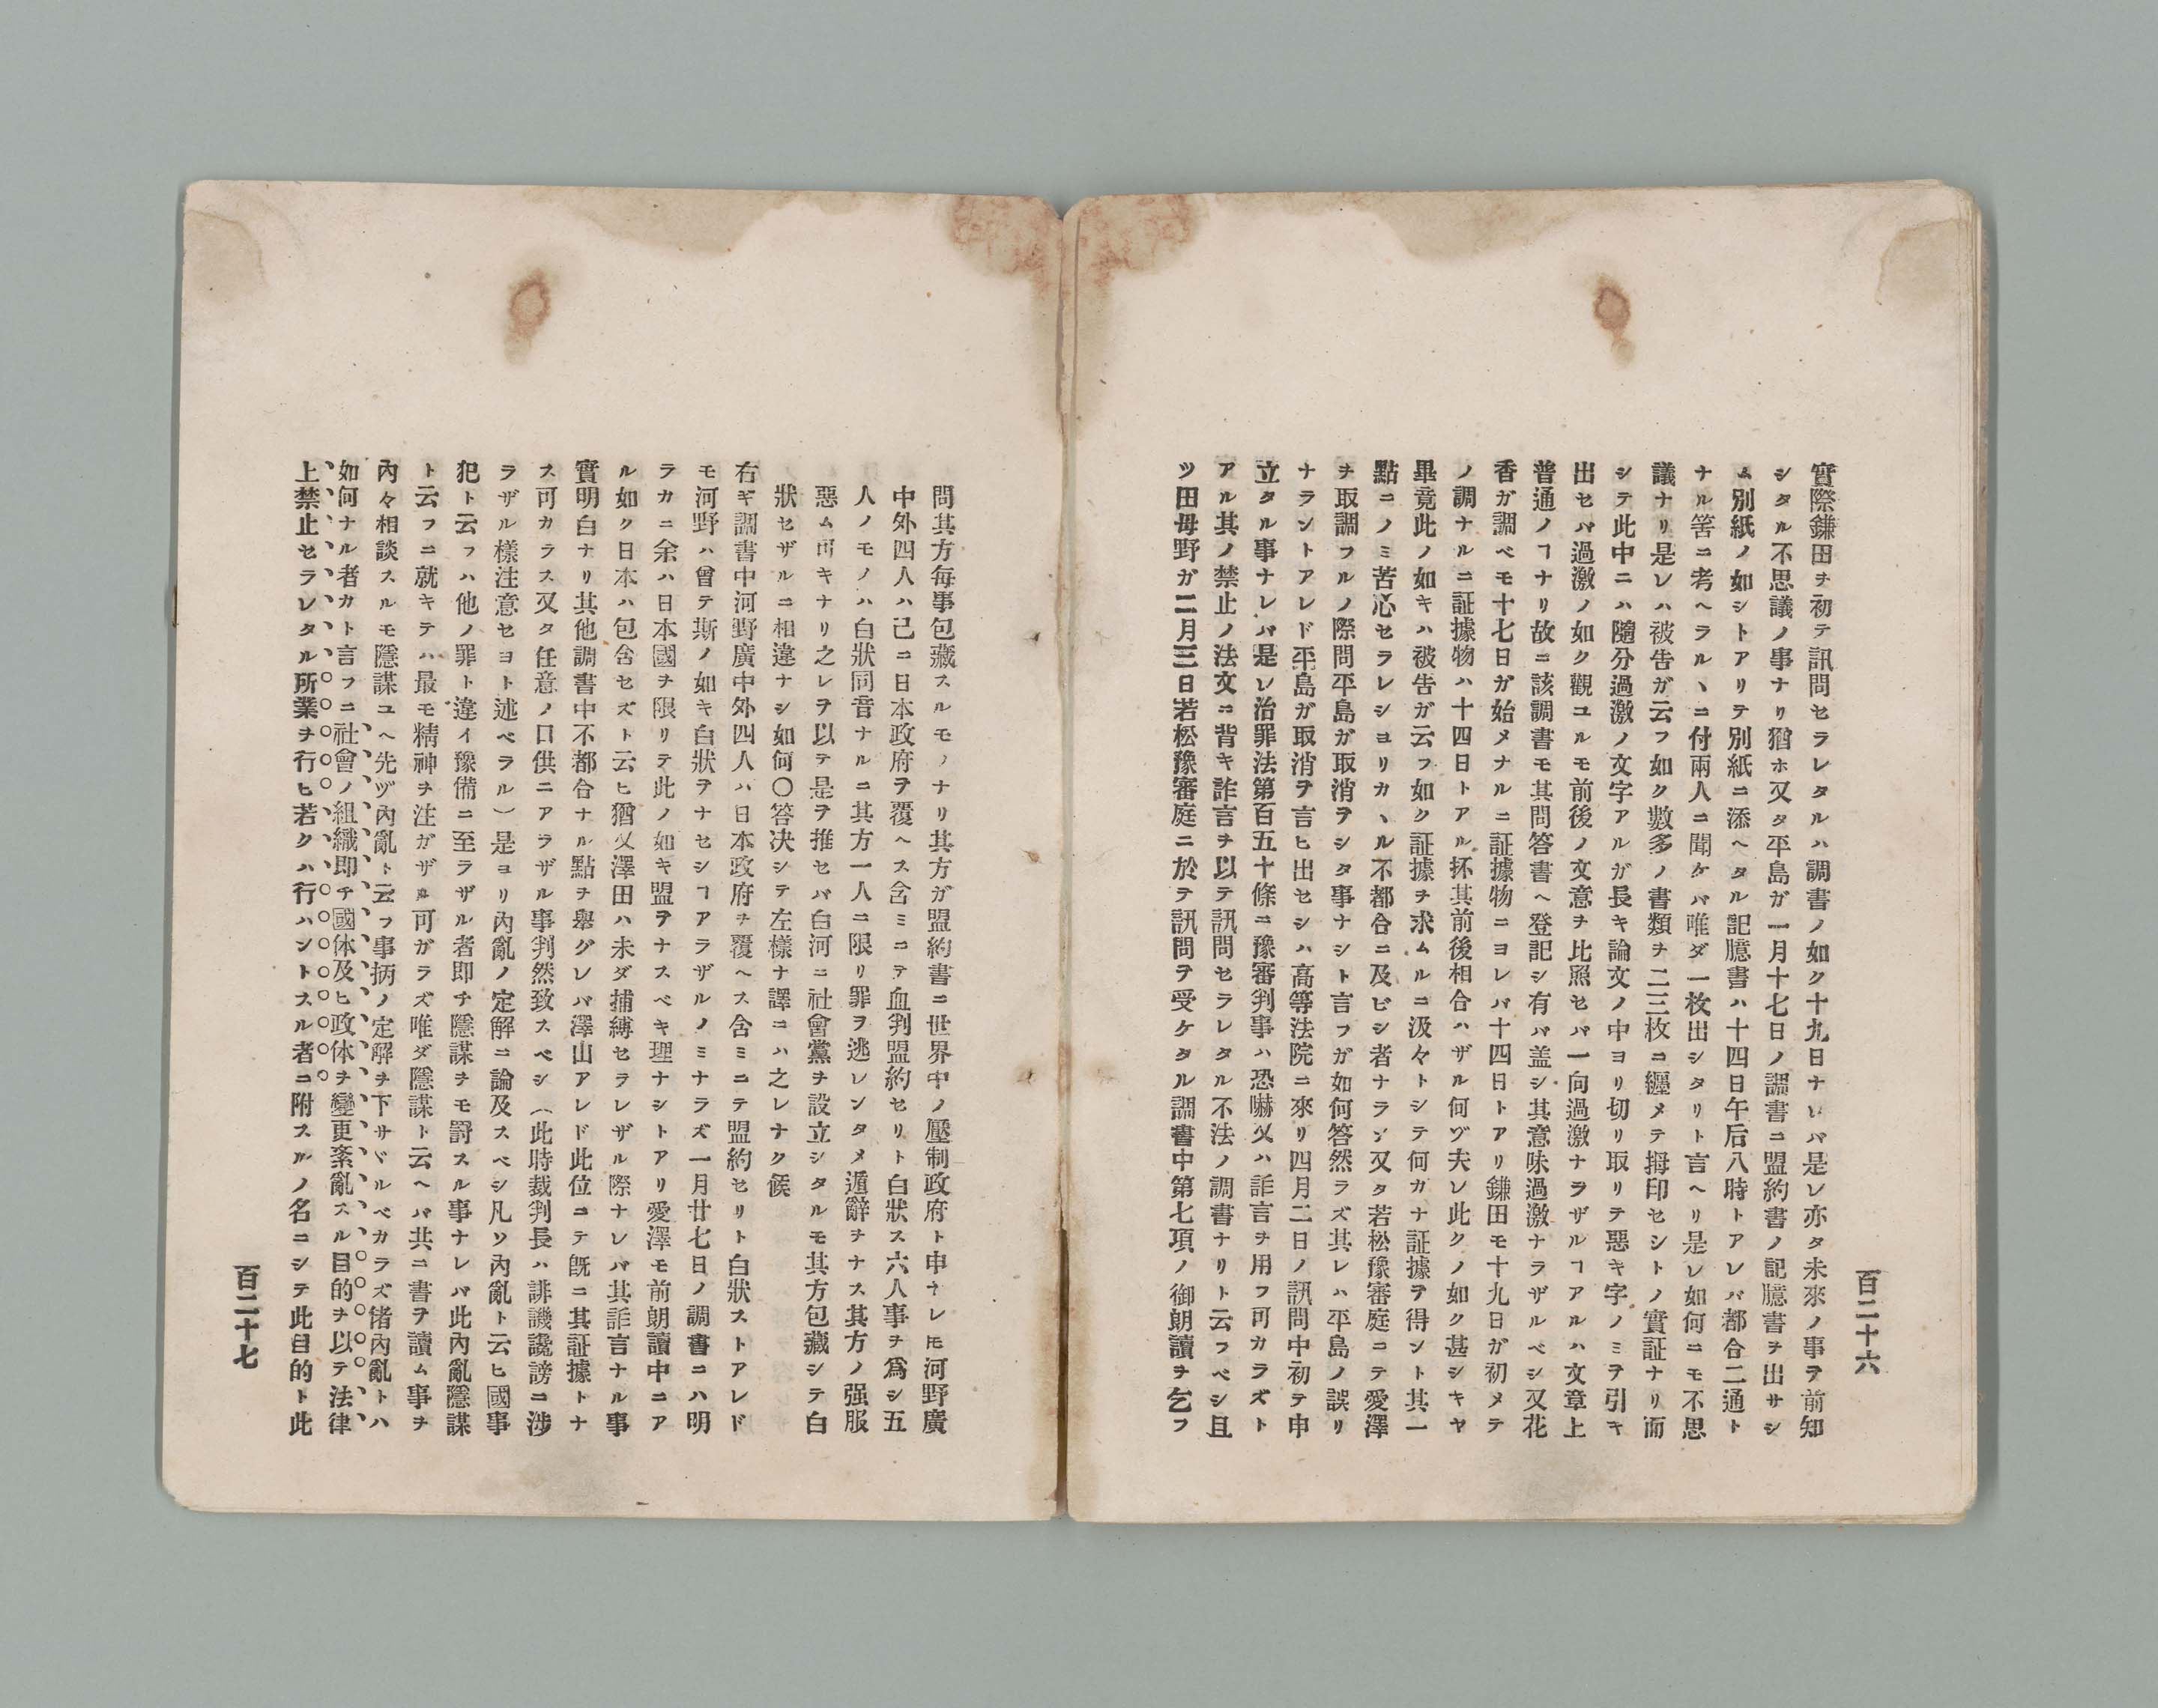 實際鎌田ヲ初テ訊問セラレタルハ調書ノ如ク十九日ナレバ是レ亦タ未來ノ事ヲ前知
シタル不思議ノ事ナリ猶ホ又タ平島ガ一月十七日ノ調書ニ盟約書ノ記臆書ヲ出サシ
ム別紙ノ如シトアリテ別紙ニ添ヘタル記臆書ハ十四日午后八時トアレバ都合二通ト
ナル筈ニ考ヘラルヽニ付兩人ニ聞ケバ唯ダ一枚出シタリト言ヘリ是レ如何ニモ不思
議ナリ是レハ被告ガ云フ如ク數多ノ書類ヲ二三枚ニ纒メテ拇印セシトノ實証ナリ而
シテ此中ニハ隨分過激ノ文字アルガ長キ論文ノ中ヨリ切リ取リテ惡キ字ノミヲ引キ
出セバ過激ノ如ク觀ユルモ前後ノ文意ヲ比照セバ一向過激ナラザルヿアルハ文章上
普通ノヿナリ故ニ該調書モ其問答書ヘ登記シ有バ盖シ其意味過激ナラザルベシ又花
香ガ調ベモ十七日ガ始メナルニ証據物ニヨレバ十四日トアリ鎌田モ十九日ガ初メテ
ノ調ナルニ証據物ハ十四日トアル抔其前後相合ハザル何ヅ夫レ此クノ如ク甚シキヤ
畢竟此ノ如キハ被告ガ云フ如ク証據ヲ求ムルニ汲々トシテ何カナ証據ヲ得ント其一
點ニノミ苦心セラレシヨリカヽル不都合ニ及ビシ者ナラン又タ若松豫審庭ニテ愛澤
ヲ取調フルノ際問平島ガ取消ヲシタ事ナシト言フガ如何答然ラズ其レハ平島ノ誤リ
ナラントアレド平島ガ取消ヲ言ヒ出セシハ高等法院ニ來リ四月二日ノ訊問中初テ申
立タル事ナレバ是レ治罪法第百五十條ニ豫審判事ハ恐嚇又ハ詐言ヲ用フ可カラズト
アル其ノ禁止ノ法文ニ背キ詐言ヲ以テ訊問セラレタル不法ノ調書ナリト云フベシ且
ツ田母野ガ二月三日若松豫審庭ニ於テ訊問ヲ受ケタル調書中第七項ノ御朗讀ヲ乞フ
百二十六
問其方毎事包藏スルモノナリ其方ガ盟約書ニ世界中ノ壓制政府ト申ナレ𪜈河野廣
中外四人ハ己ニ日本政府ヲ覆ヘス含ミニテ血判盟約セリト白狀ス六人事ヲ爲シ五
人ノモノハ白狀同音ナルニ其方一人ニ限リ罪ヲ逃レンタメ遁辭ヲナス其方ノ强服
惡ム可キナリ之レヲ以テ是ヲ推セバ白河ニ社會黨ヲ設立シタルモ其方包藏シテ白
狀セザルニ相違ナシ如何〇答決シテ左樣ナ譯ニハ之レナク候
右ギ調書中河野廣中外四人ハ日本政府ヲ覆ヘス含ミニテ盟約セリト白狀ストアレド
モ河野ハ曾テ斯ノ如キ白狀ヲナセシヿアラザルノミナラズ一月廿七日ノ調書ニハ明
ラカニ余ハ日本國ヲ限リテ此ノ如キ盟ヲナスベキ理ナシトアリ愛澤モ前朗讀中ニア
ル如ク日本ハ包含セズト云ヒ猶又澤田ハ未ダ捕縛セラレザル際ナレバ其詐言ナル事
實明白ナリ其他調書中不都合ナル點ヲ擧グレバ澤山アレド此位ニテ旣ニ其証據トナ
ス可カラス又タ任意ノ口供ニアラザル事判然致スベシ（此時裁判長ハ誹譏讒謗ニ涉
ラザル樣注意セヨト述ベラル）是ヨリ內亂ノ定解ニ論及スベシ凡ソ內亂ト云ヒ國事
犯ト云フハ他ノ罪ト違イ豫備ニ至ラザル者即チ隱謀ヲモ罰スル事ナレバ此內亂隱謀
ト云フニ就キテハ最モ精神ヲ注ガザル可ガラズ唯ダ隱謀ト云ヘバ共ニ書ヲ讀ム事ヲ
內々相談スルモ隱謀ユヘ先ヅ內亂ト云フ事柄ノ定解ヲ下サヾルベカラズ偖內亂トハ
如何ナル者カト言フニ社會ノ組織即チ國体及ヒ政体ヲ變更紊亂スル目的ヲ以テ法律
上禁止セラレタル所業ヲ行ヒ若クハ行ハントスル者ニ附スルノ名ニシテ此目的ト此
百二十七